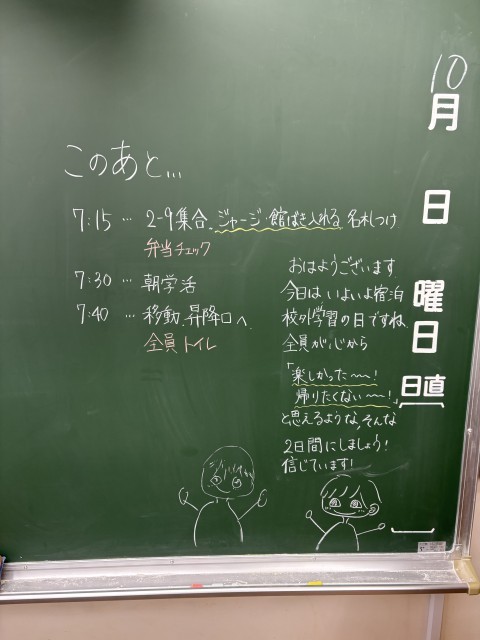 10
月
日
曜日
日直
このあと…
7:15 … 2-9集合、ジャージ・館ばき入れる 名札つけ
弁当チェック
7:30 … 朝学活
7:40 … 移動、昇降口へ
全員トイレ
おはようございます
今日はいよいよ宿泊
校外学習の日ですね
全員が、心から
「楽しかった〜〜!
帰りたくない〜〜!」
と思えるような、そんな
2日間にしましょう!
信じています!